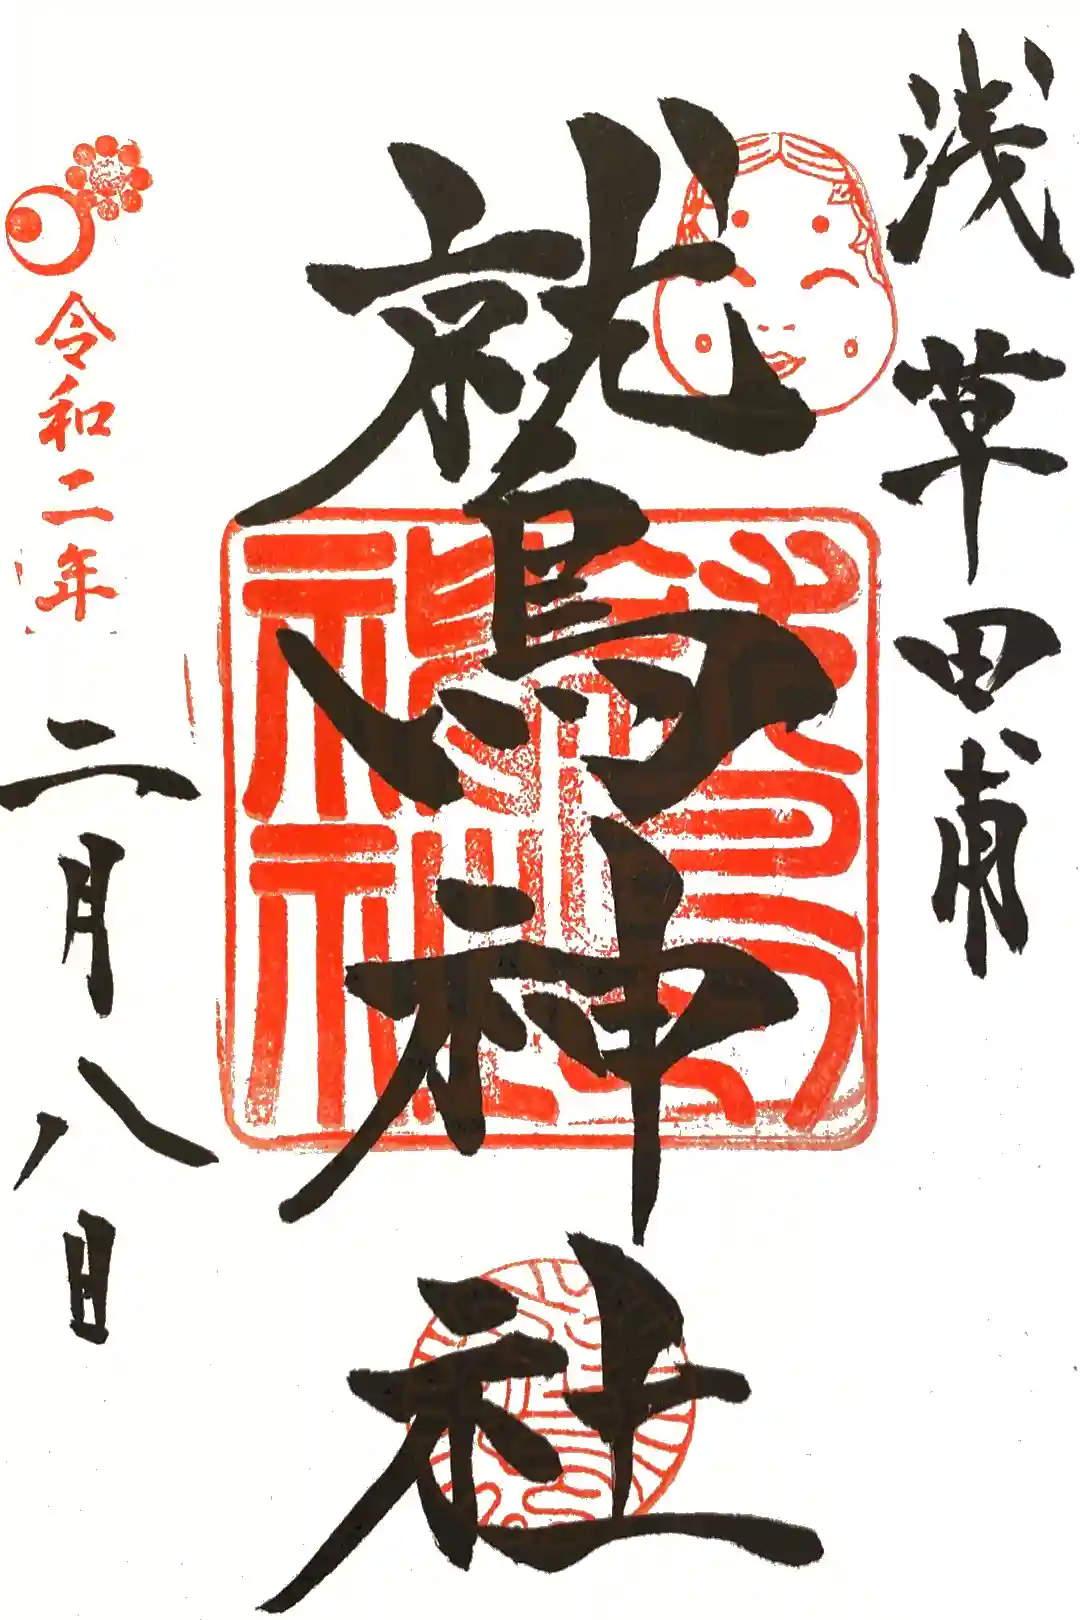 浅草田甫
鷲神社
令和二年
二月八日